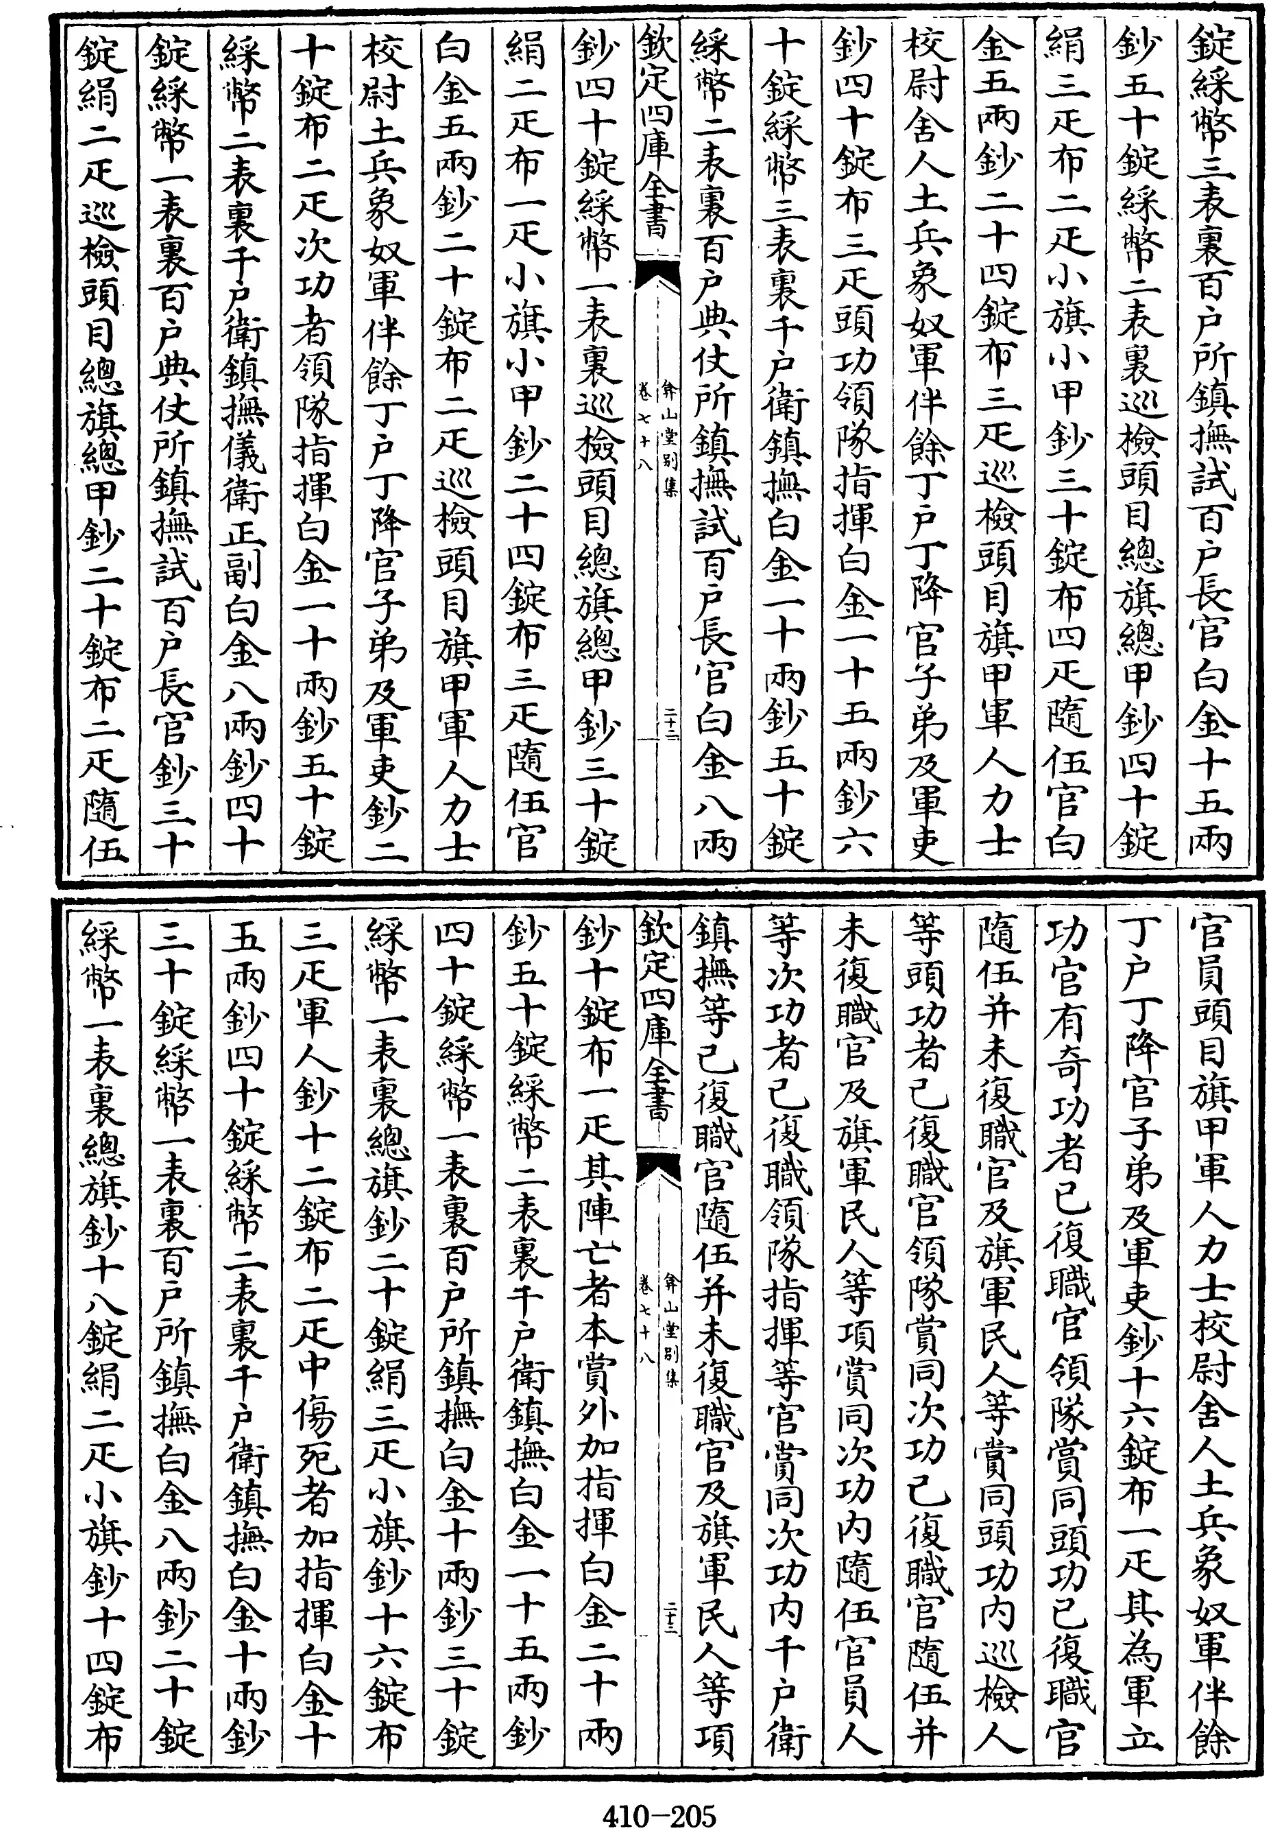 錠綵幣三表裏百户所鎮撫試百户長官白金十五兩
鈔五十錠綵幣二表裏巡檢頭目總旗總甲鈔四十錠
絹三疋布二疋小旗小甲鈔三十錠布四疋隨伍官白
金五兩鈔二十四錠布三疋巡檢頭目旗甲軍人力士
校尉舍人土兵象奴軍伴餘丁户丁降官子弟及軍吏
鈔四十錠布三疋頭功領隊指揮白金一十五兩鈔六
十錠綵幣三表裏千户衛鎮撫白金一十兩鈔五十錠
綵幣二表裏百户典仗所鎮撫試百户長官白金八兩
欽定四庫全書
弇山堂别集
卷七十八
二十二
鈔四十錠綵幣一表裏巡檢頭目總旗總甲鈔三十錠
絹二疋布一疋小旗小甲鈔二十四錠布三疋隨伍官
白金五兩鈔二十錠布二疋巡檢頭目旗甲軍人力士
校尉土兵象奴軍伴餘丁户丁降官子弟及軍吏鈔二
十錠布二疋次功者領隊指揮白金一十兩鈔五十錠
綵幣二表裏千户衛鎮撫儀衛正副白金八兩鈔四十
錠綵幣一表裏百户典仗所鎮撫試百户長官鈔三十
錠絹二疋巡檢頭目總旗總甲鈔二十錠布二疋隨伍
官員頭目旗甲軍人力士校尉舍人土兵象奴軍伴餘
丁户丁降官子弟及軍吏鈔十六錠布一疋其為軍立
功官有奇功者已復職官領隊賞同頭功已復職官
隨伍并未復職官及旗軍民人等賞同頭功内巡檢人
等頭功者已復職官領隊賞同次功已復職官隨伍并
未復職官及旗軍民人等項賞同次功内隨伍官員人
等次功者已復職領隊指揮等官賞同次功内千户衛
鎮撫等已復職官隨伍并未復職官及旗軍民人等項
欽定四庫全書
弇山堂别集
卷七十八
二十三
鈔十錠布一疋其陣亡者本賞外加指揮白金二十兩
鈔五十錠綵幣二表裏千户衛鎮撫白金一十五兩鈔
四十錠綵幣一表裏百户所鎮撫白金十兩鈔三十錠
綵幣一表裏總旗鈔二十錠絹三疋小旗鈔十六錠布
三疋軍人鈔十二錠布二疋中傷死者加指揮白金十
五兩鈔四十錠綵幣二表裏千户衛鎮撫白金十兩鈔
三十錠綵幣一表裏百户所鎮撫白金八兩鈔二十錠
綵幣一表裏總旗鈔十八錠絹二疋小旗鈔十四錠布
410-205